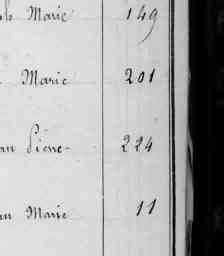 Marie 149
Marie 201
Pierre 224
Marie 11